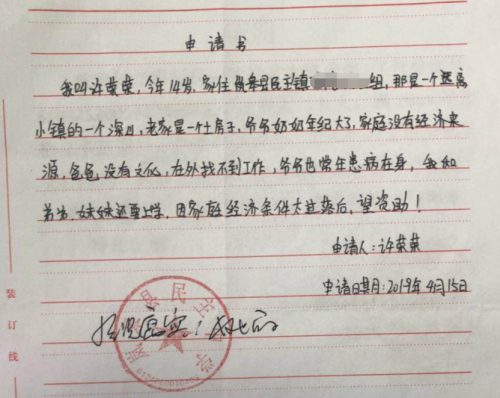 申请书
我叫许荣荣，今年14岁，家住俄阜县民主镇 组，那是一个远离
小镇的一个深山，老家是一个土房子，爷爷奶奶年纪大了，家庭没有经济来
源，爸爸没有文化，在外找不到工作，爷爷也常年患病在身，我和
弟弟、妹妹还要上学，因家庭经济条件太过落后，望资助！
申请人：许荣荣
申请日期：2019年4月15日
情况属实！
民主
学
装订线